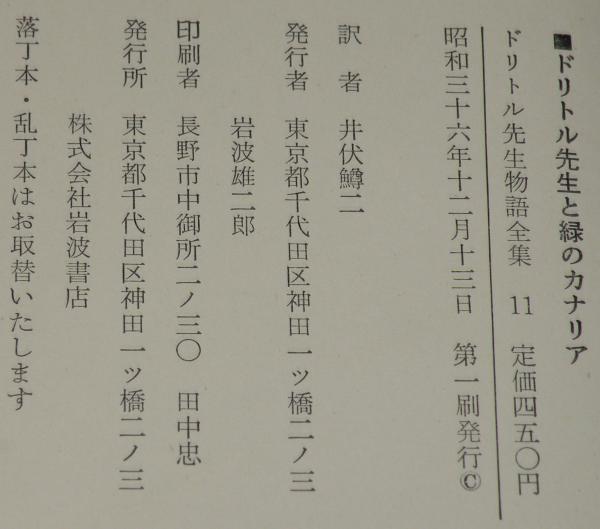 ■ドリトル先生と緑のカナリア
ドリトル先生物語全集 11 定価四五〇円
昭和三十六年十二月十三日 第一刷発行©
訳者 井伏鱒二
発行者 東京都千代田区神田一ツ橋二ノ三
岩波雄二郎
印刷者 長野市中御所二ノ三〇 田中忠
発行所 東京都千代田区神田一ツ橋二ノ三
株式会社岩波書店
落丁本・乱丁本はお取替いたします